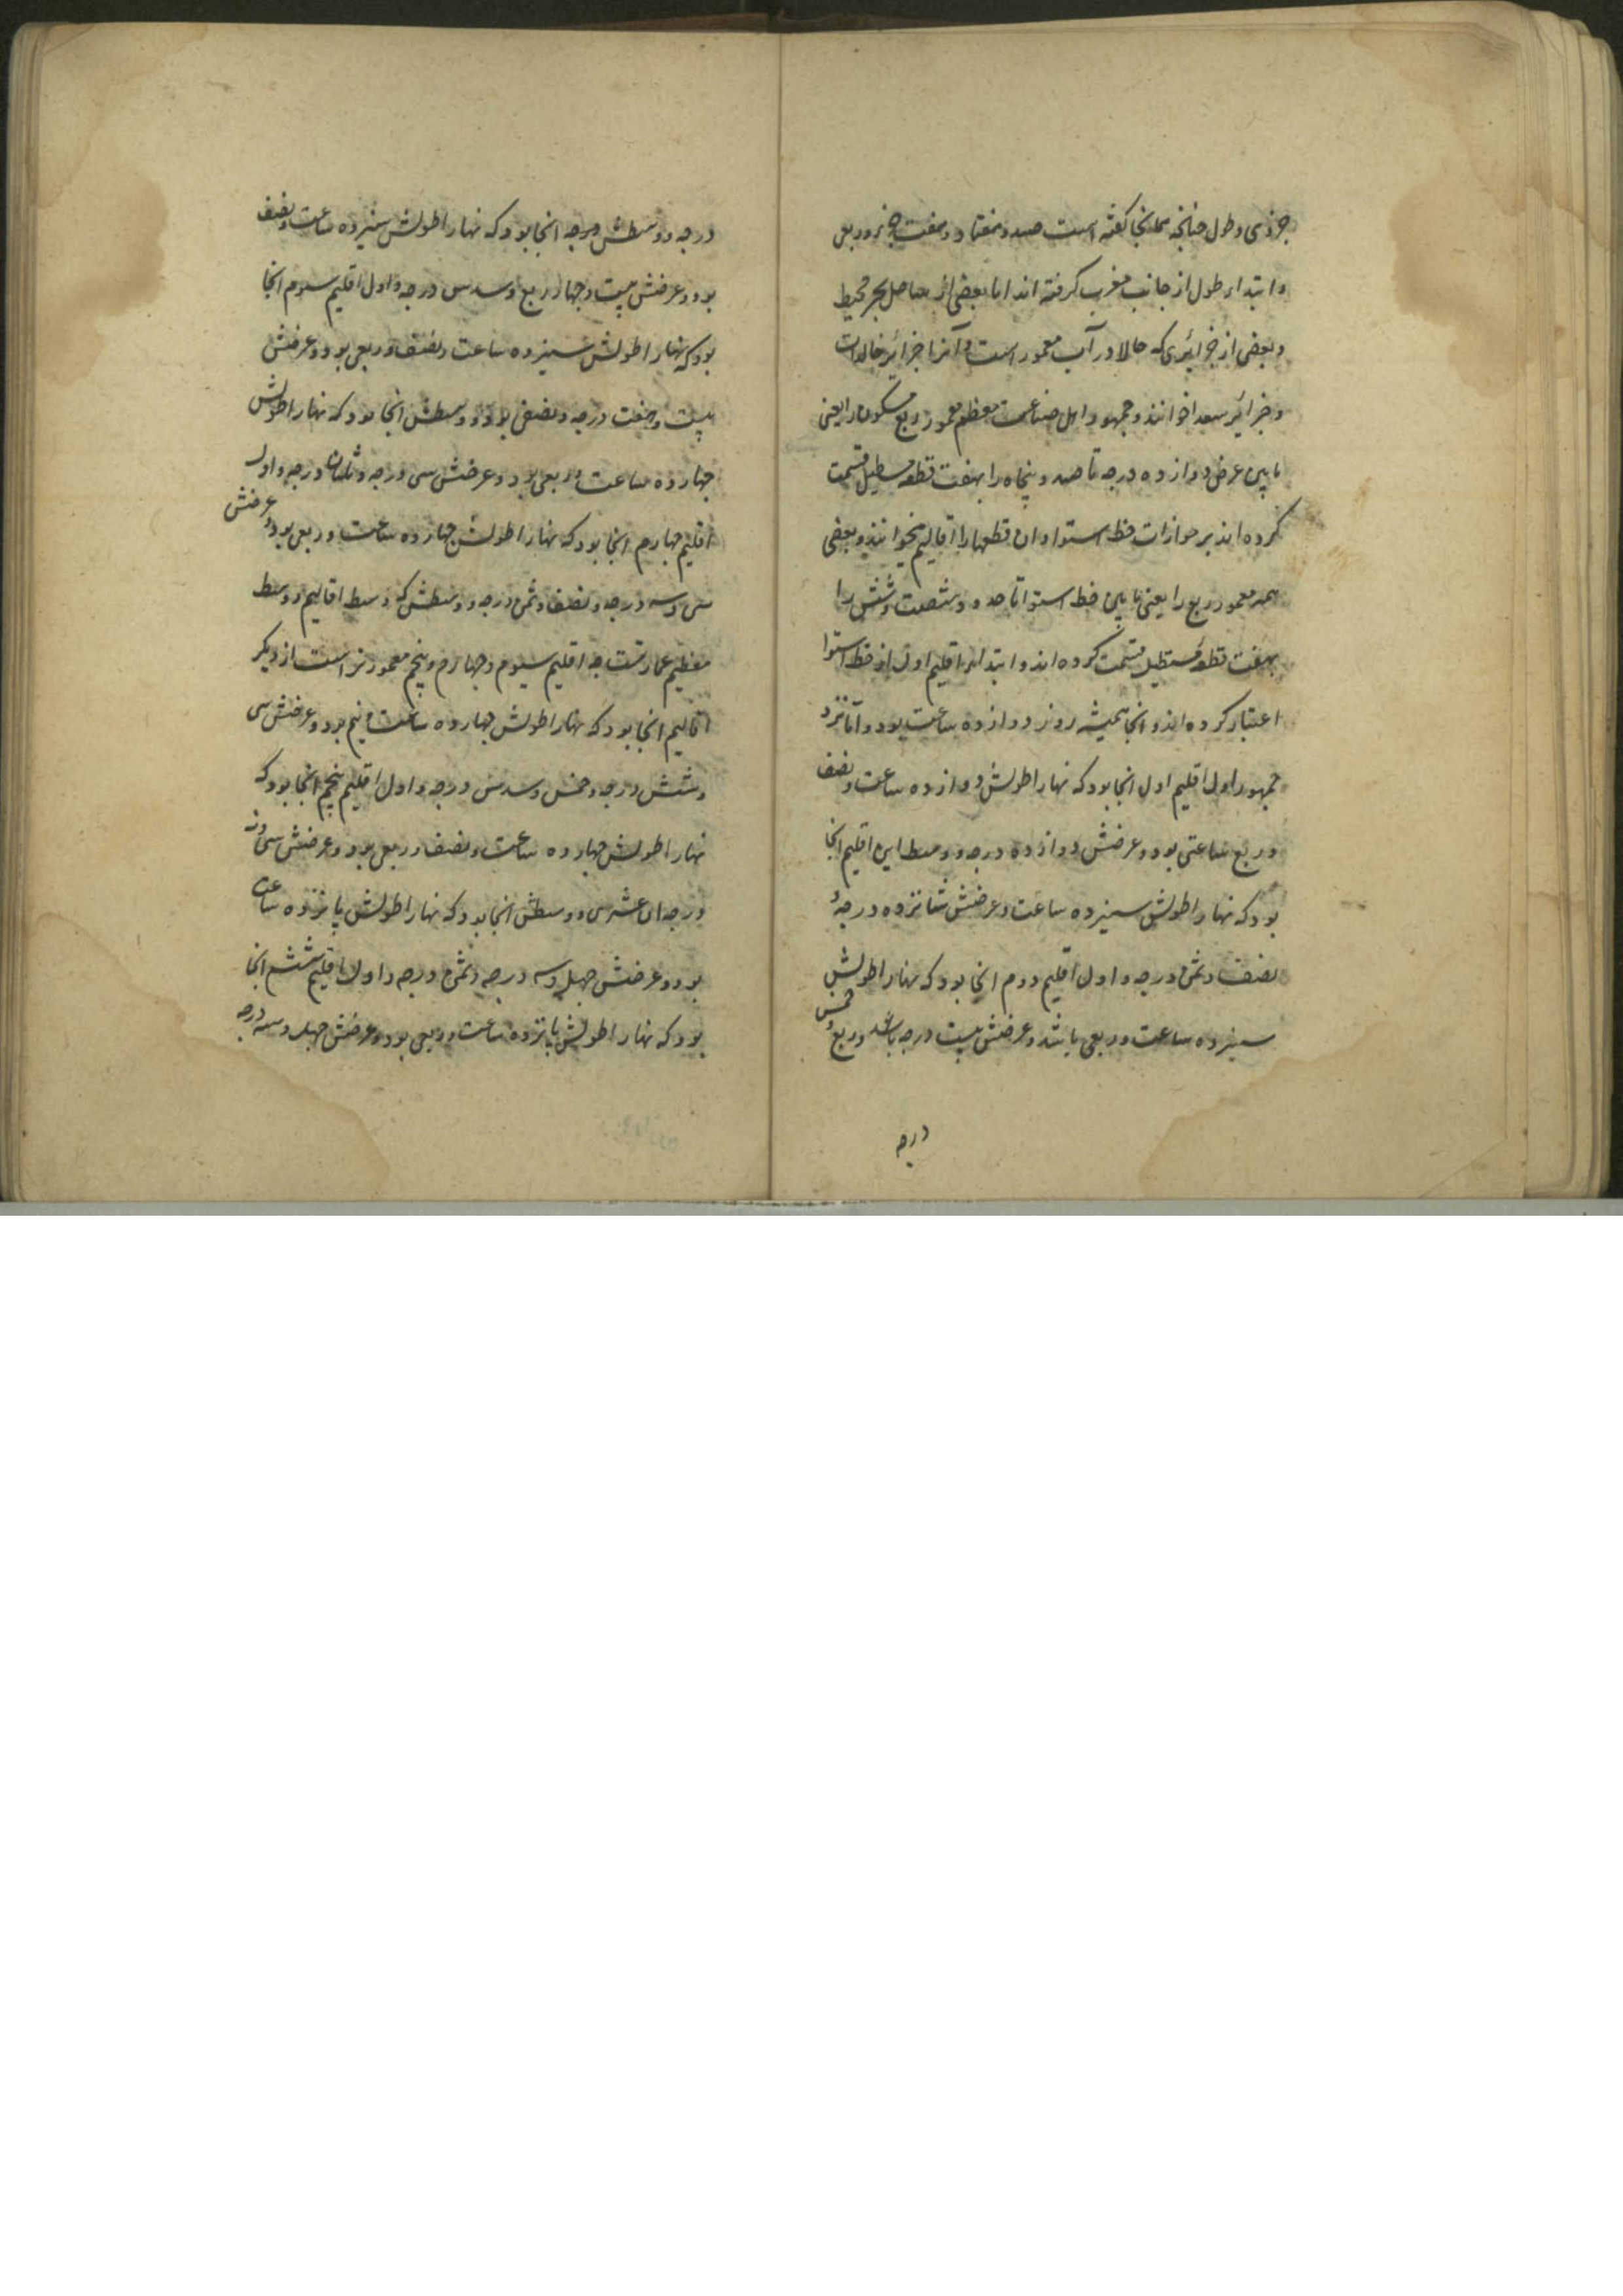 جزوی و طول چنانچه همانجا گفته است صد و هفتاد و هفت جزو و ربعی
و ابتداء طول از جانب مغرب گرفته اند اما بعضی از ساحل بحر محیط
و بعضی از جزائری که حالا در آب مغمور است و آنرا جزائر خالدات
و جزائر سعدا خوانند و جمهور اهل صناعت معظم معمور ربع مسکون را یعنی
مابین عرض دوازده درجه تا صد و پنجاه را بهفت قطعه مستطیل قسمت
کرده اند بر موازات خط استوا و ان قطعها را اقالیم میخوانند و بعضی
همه معمور ربع را یعنی مابین خط استوا تا حدود شصت و شش را
بهفت قطعه مستطیل قسمت کرده اند و ابتداء اقلیم اول از خط استوا
اعتبار کرده اند و انجا همیشه روز دوازده ساعت بود و اما نزد
جمهور اول اقلیم اول انجا بود که نهار اطولش دوازده ساعت و نصف
و ربع ساعتی بود و عرضش دوازده درجه و وسط این اقلیم انجا
بود که نهار اطولش سیزده ساعت و عرضش شانزده درجه و
نصف و ثمن درجه و اول اقلیم دوم انجا بود که نهار اطولش
سیزده ساعت و ربعی باشد و عرضش بیست درجه باشد و ربع و خمس
درجه
درجه و وسطش انجا بود که نهار اطولش سیزده ساعت و نصف
بود و عرضش بیست و چهار و ربع و سدس درجه و اول اقلیم سیوم انجا
بود که نهار اطولش سیزده ساعت و نصف و ربعی بود و عرضش
بیست و هفت درجه و نصفی بود و وسطش انجا بود که نهار اطولش
چهارده ساعت بود و عرضش سی درجه و ثلثان درجه و اول
اقلیم چهارم انجا بود که نهار اطولش چهارده ساعت و ربعی بود و عرضش
سی و سه درجه و نصف و ثمن درجه و وسطش که وسط اقالیم و وسط
معظم عمارتست چه اقلیم سیوم و چهارم و پنجم معمورتر است از دیگر
اقالیم انجا بود که نهار اطولش چهارده ساعت و نیم بود و عرضش سی
و شش درجه و خمس و سدس درجه و اول اقلیم پنجم انجا بود که
نهار اطولش چهارده ساعت و نصف و ربعی بود و عرضش سی و نه
درجه الا عشری و وسطش انجا بود که نهار اطولش پانزده ساعت
بود و عرضش چهل و سه درجه و ثمن درجه و اول اقلیم ششم انجا
بود که نهار اطولش پانزده ساعت و ربعی بود و عرضش چهل و سه درجه